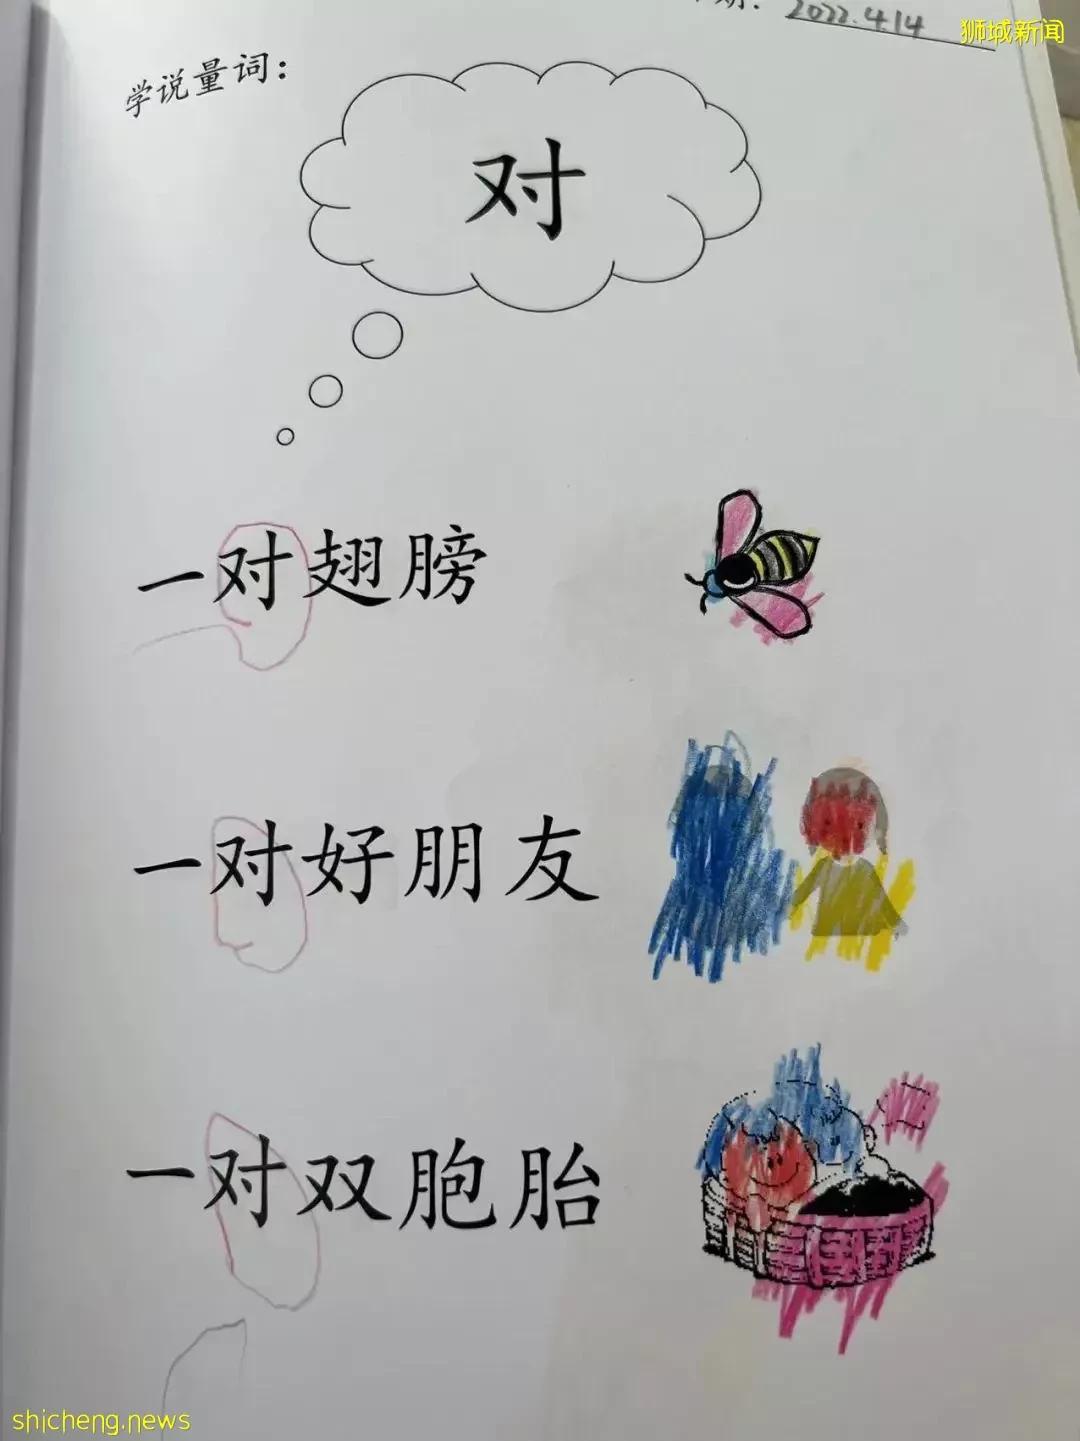 期：2022.4.14
狮城新闻
学说量词：
对
一对翅膀
一对好朋友
一对双胞胎
shicheng.news